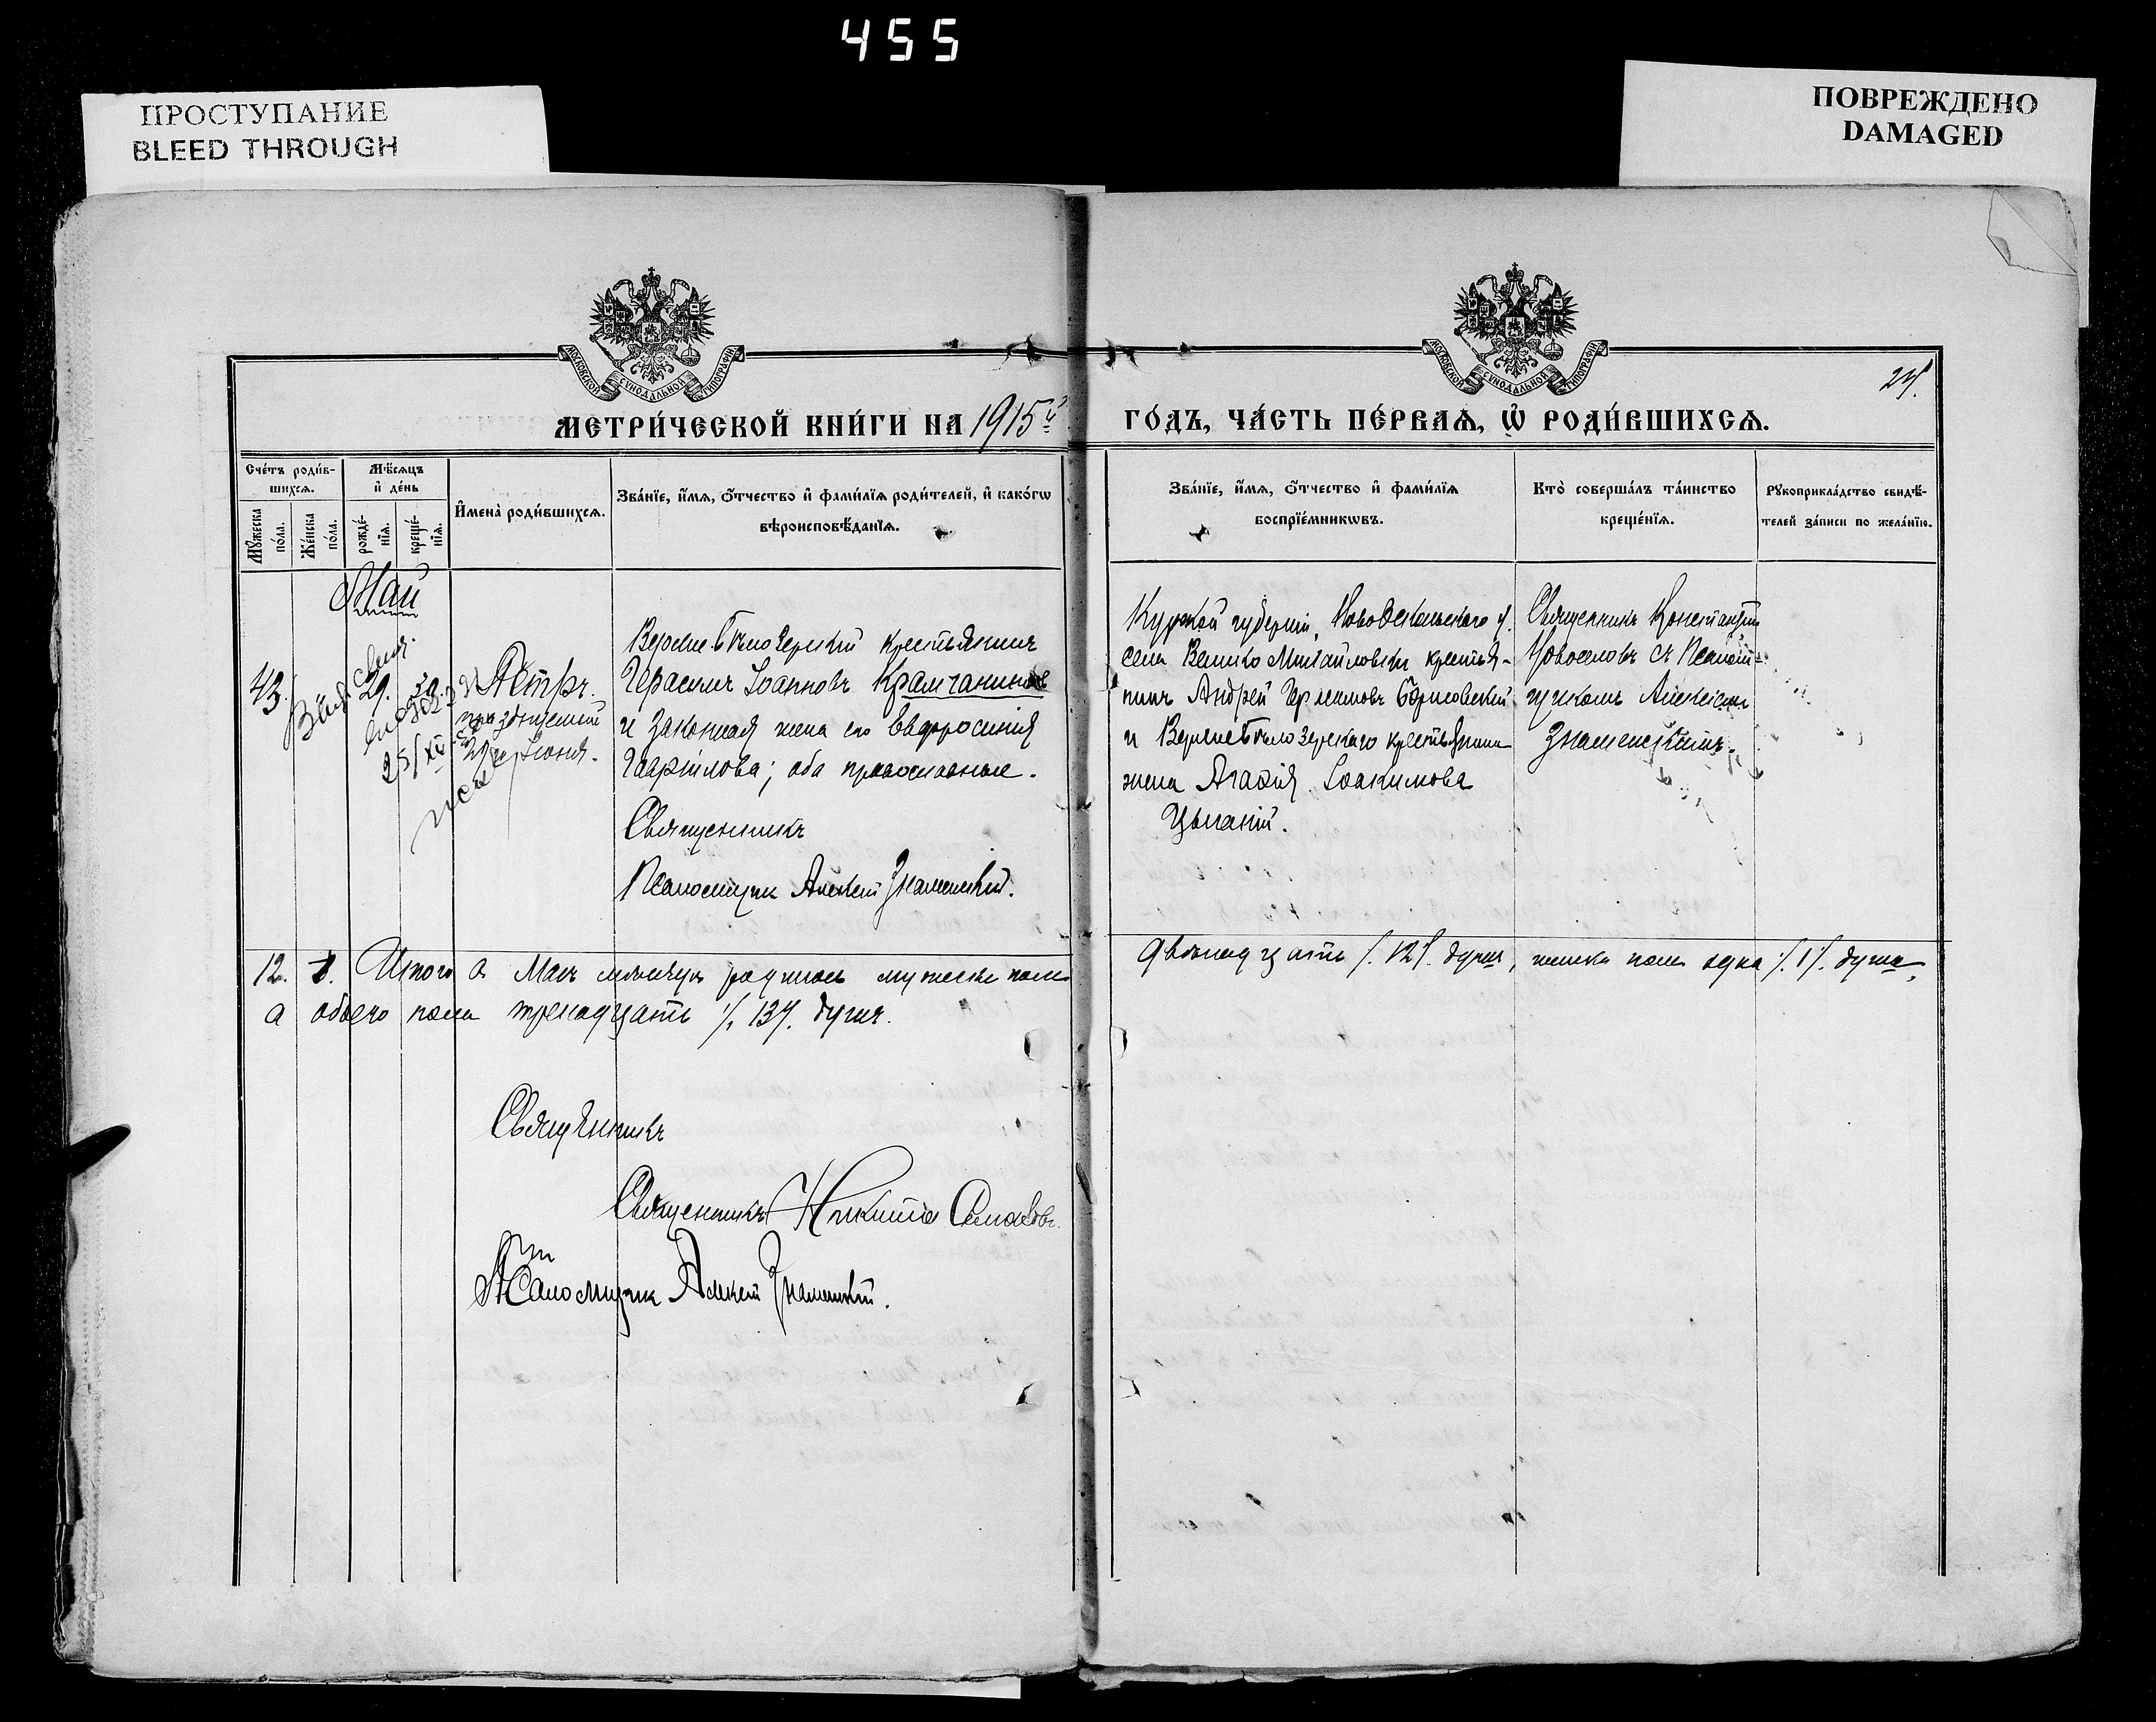 455
ПРОСТУПАНИЕ
BLEED THROUGH
ПОВРЕЖДЕНО
DAMAGED
МОСКОВСКОЙ СѴНОДАЛЬНОЙ ТИПОГРАФІИ
МОСКОВСКОЙ СѴНОДАЛЬНОЙ ТИПОГРАФІИ
24.
МЕТРИ́ЧЕСКОЙ КНИ́ГИ НА 1915й
ГО́ДЪ, ЧА́СТЬ ПЕ́РВАѦ, Ѿ РОДИ́ВШИХСѦ.
Сче́тъ роди́в-
шихсѧ.
Мꙋ́жеска по́ла.
Же́нска по́ла.
Мѣ́сѧцъ
и҆ де́нь
рожде́-
нїѧ.
креще́-
нїѧ.
И҆мена̀ роди́вшихсѧ.
Зва́нїе, и҆́мѧ, ѻ҆́тчество и҆ фами́лїѧ роди́телей, и҆ како́гѡ
вѣроисповѣ́данїѧ.
Зва́нїе, и҆́мѧ, ѻ҆́тчество и҆ фами́лїѧ
воспрїе́мникѡвъ.
Кто̀ соверша́лъ та́инство
креще́нїѧ.
Рꙋкоприкла́дство свидѣ́-
телей за́писи по жела́нїю.
Май
43.
29. 30
25/XII
Петръ.
празднуемый
29 Іюня.
Верхне-Бѣлозерскій крестьянинъ
Герасимъ Іоанновъ Крамчаниновъ
и законная жена его Евфросинія
Гавріилова; оба православные.
Священникъ
Псаломщикъ Алексѣй Знаменскій.
Курской губерніи, Новооскольскаго у.
села Велико Михайловки крестья-
нинъ Андрей Борисовскій
и Верхне-Бѣлозерскаго крестьянина
жена Агафія Іоакимова
Цыганій.
Священникъ Константинъ
Новоселовъ съ Псалом-
щикомъ Алексѣемъ
Знаменскимъ.
12. 1. Итого въ Маѣ мѣсяцѣ родилось мужеска пола
двѣнадцать /.12/. душъ, женска пола одна /.1/. душа,
а обоего пола тринадцать /.13/. душъ.
Священникъ
Священникъ Никита
Псаломщикъ Алексѣй Знаменскій.